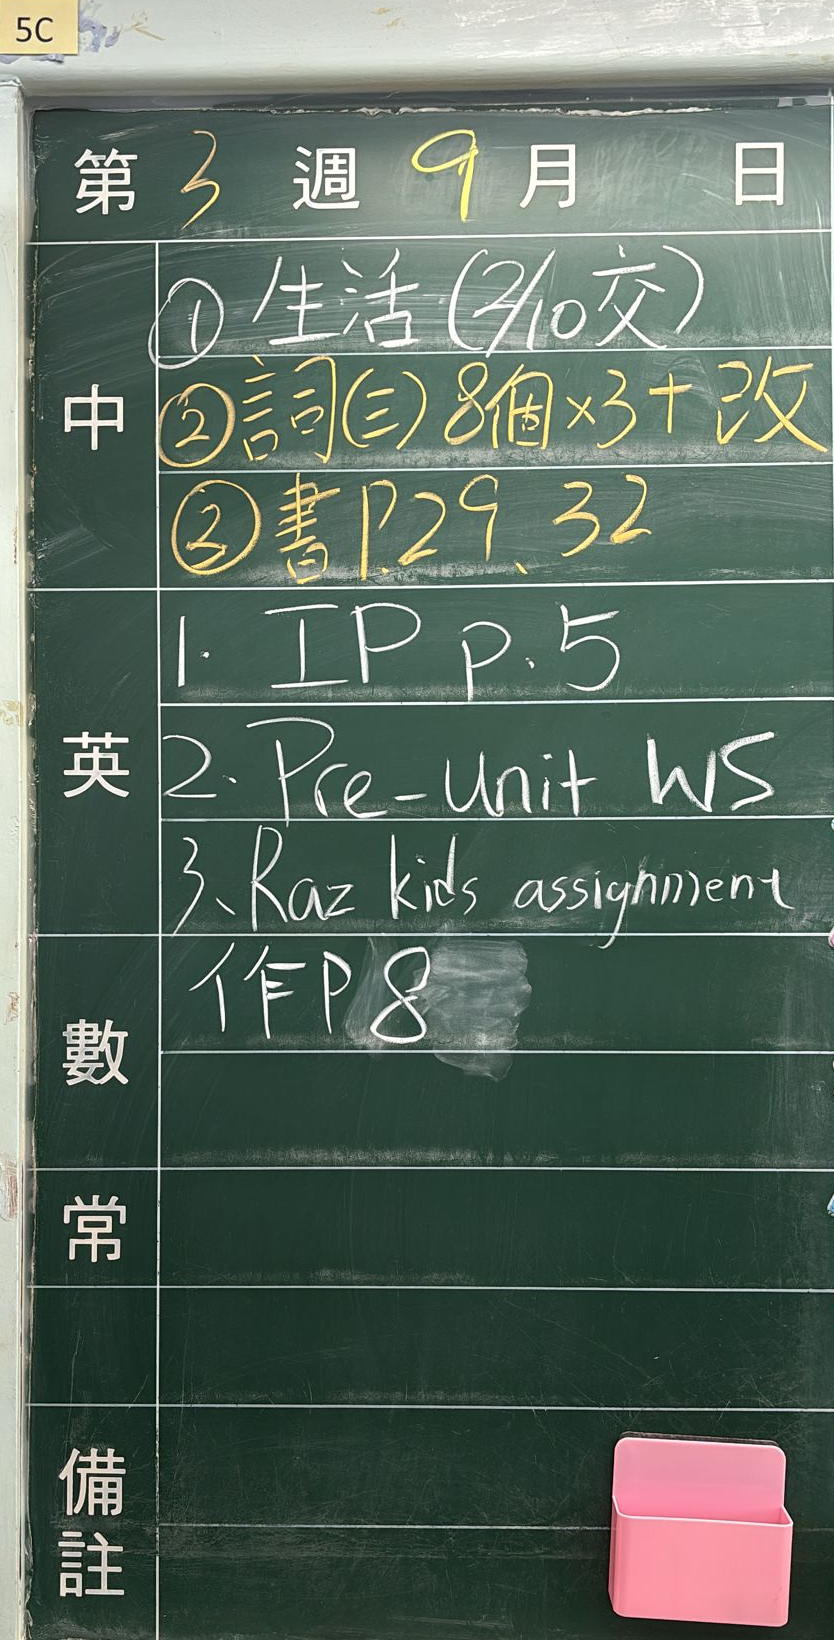 5C
第 3 週 9 月 日
中
① 生活 (2/10交)
② 詞(三) 8個×3+改
② 書P.29、32
英
1. IP p.5
2. Pre-unit WS
3、Raz kids assignment
數
作P8
常
備註